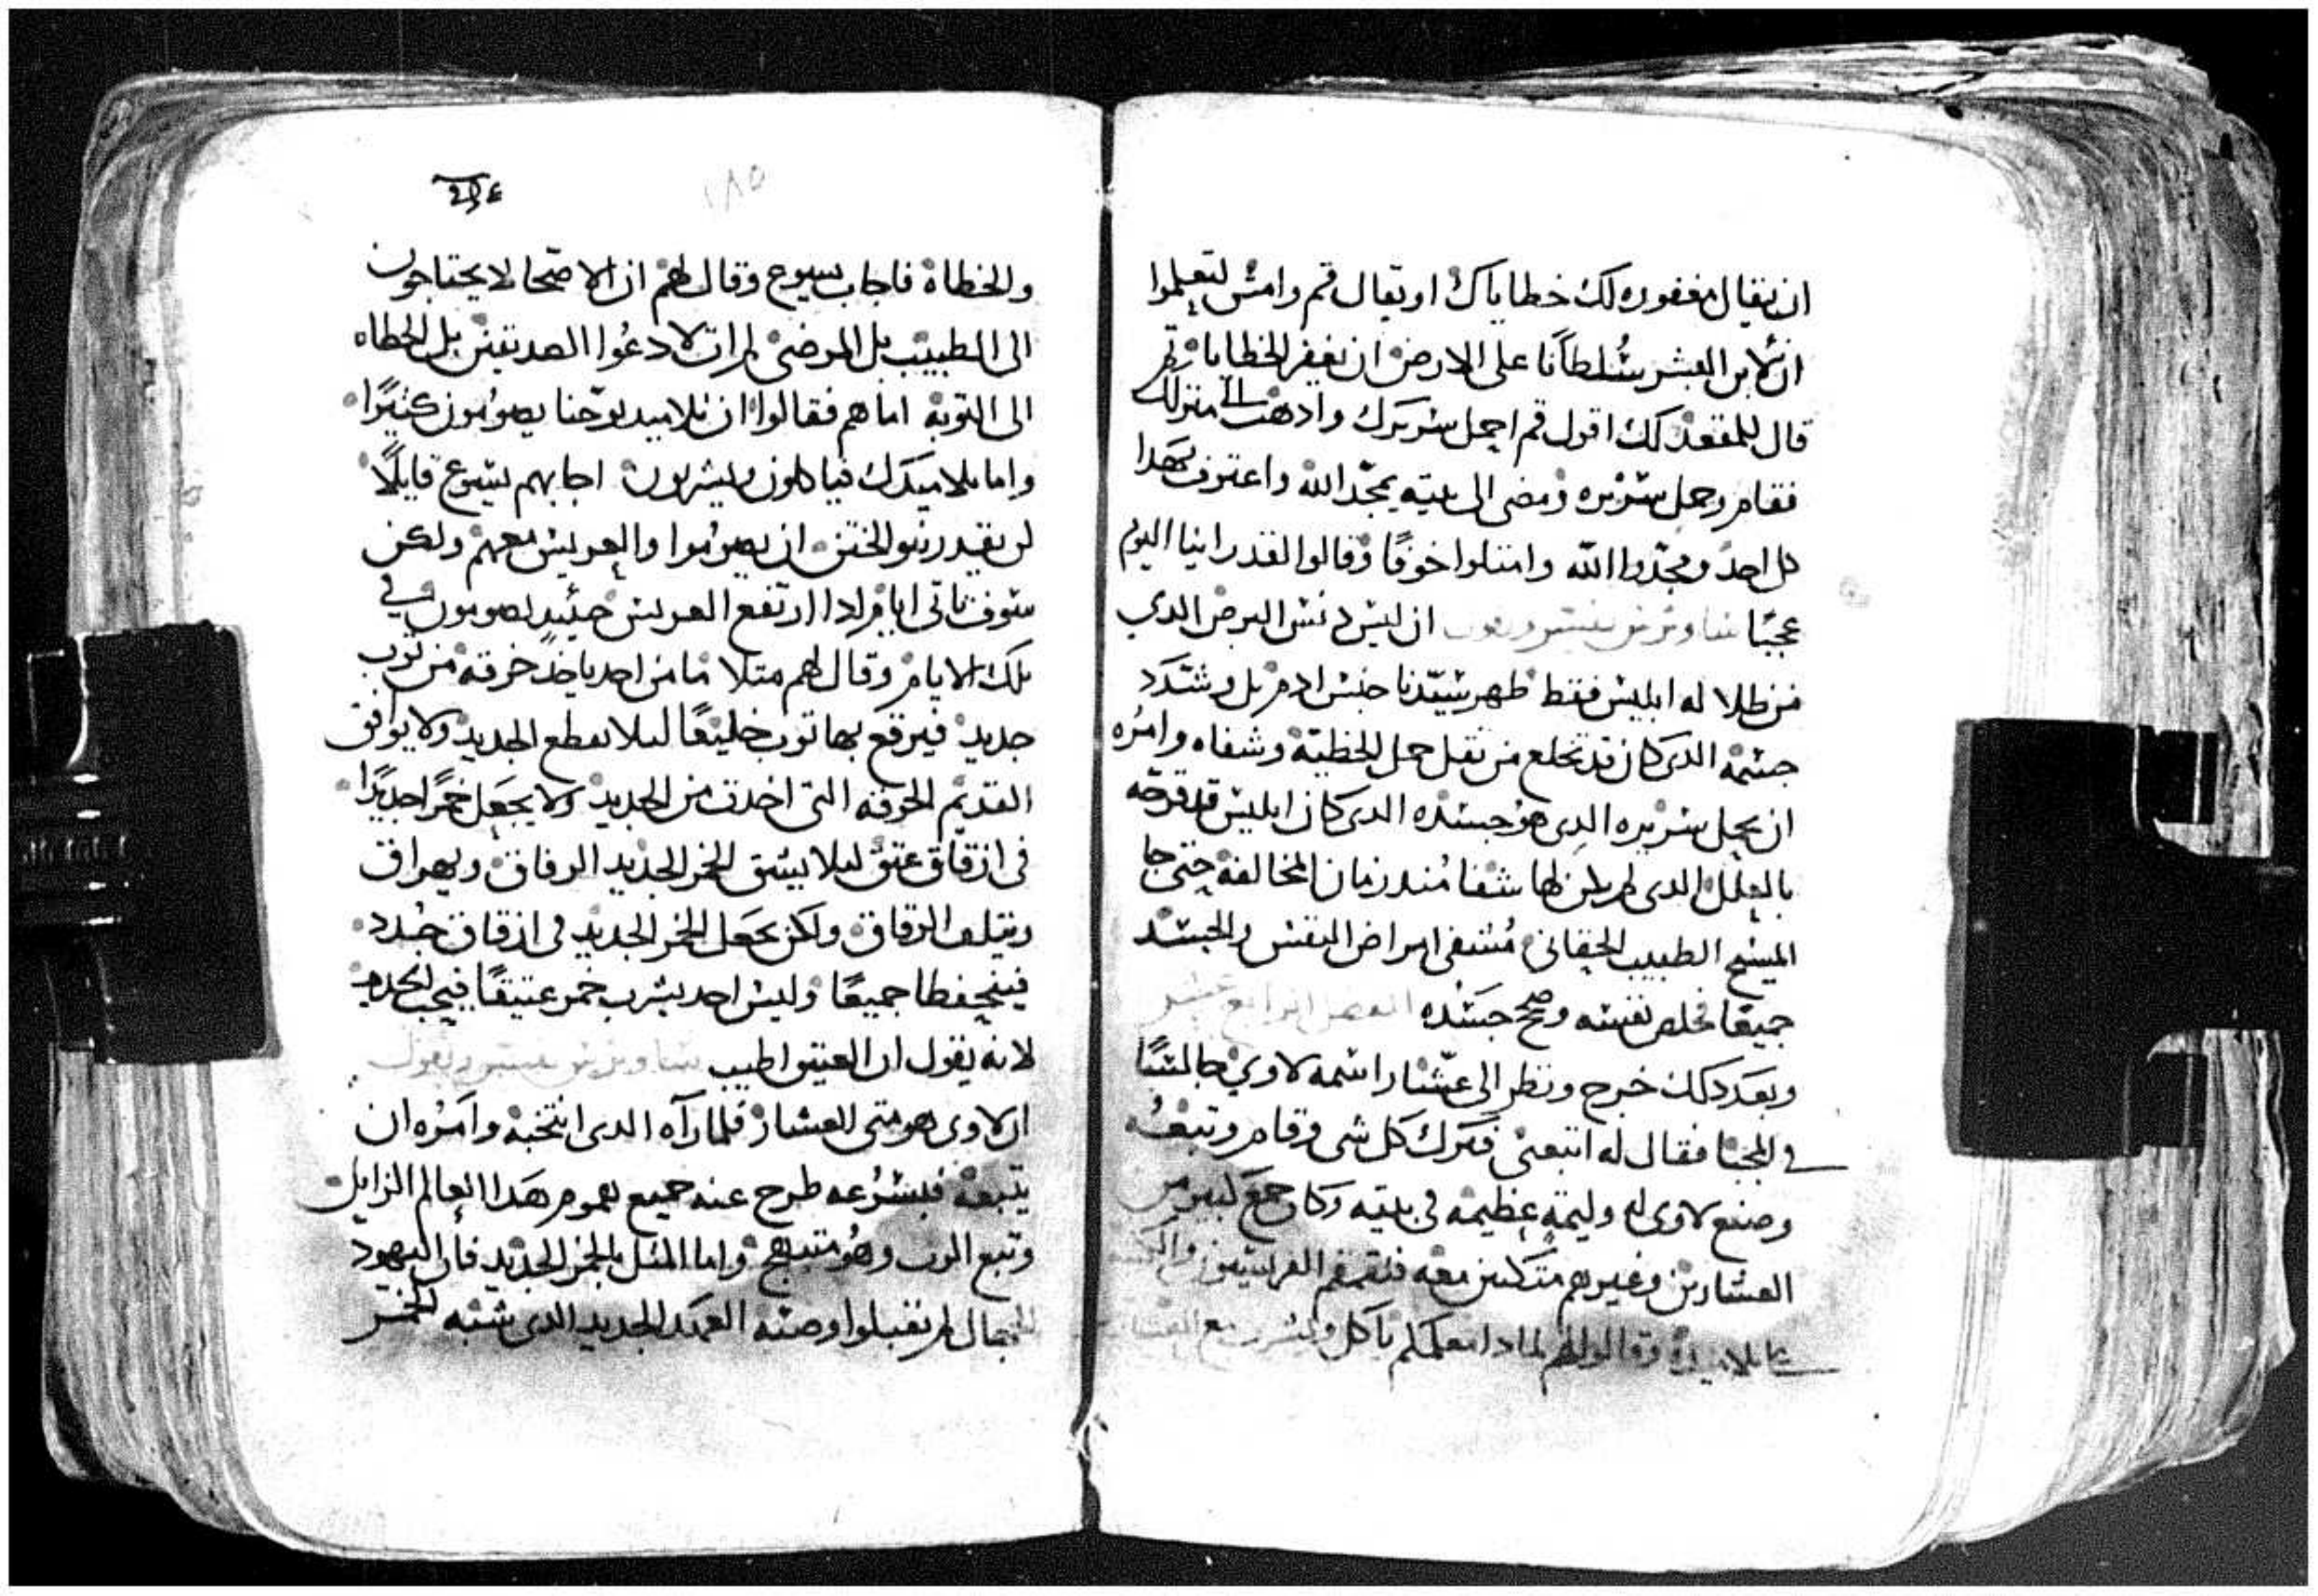 ان يقال مغفوره لك خطاياك او يقال قم وامش لتعلموا
ان لابن البشر سُلطانًا على الارض ان يغفر الخطايا تم
قال للمقعد لك اقول قم احمل سريرك وادهب الى منزلك
فقام وحمل سريره ومضى الى بيته يمجّد الله واعترف بهدا
كل احد ومجّدوا الله وامتلوا خوفًا وقالوا لقد راينا اليوم
عجبًا ان ليس دنس البرص الدي
من طلا له ابليس فقط طهر سيّدنا جنس ادم بل وشدّد
جسمه الدى كان قد تخلع من ثقل حمل الخطيّة وشفاه وامرُه
ان يحمل سريره الدى هو جسده الدى كان ابليس قد قرحه
بالعلل الدى لم يكن لها شفا مُند زمان المخالفه حتى جا
المسيح الطبيب الحقانى مُشفى امراض النفس والجسد
جميعًا فخلص نفسه وصحح جسده الفصل الرابع عشر
وبعد دلك خرج ونظر الى عشّار اسمه لاوي جالسًا
في المجبا فقال له اتبعنى فترك كل شى وقام وتبعُه
وصنع لاوى له وليمة عظيمه فى بيته وكان جمع كبير من
العشارين وغيرهم متكين معه فتقمقم الفريسيين
على تلاميده وقالوا لهم لمادا معلمكم ياكل ويشرب مع العشارين
١٨٥
والخطاة فاجاب يسوع وقال لهم ان الاصحا لا يحتاجون
الى الطبيب بل المرضى لم ات لادعُوا الصديقين بل الخطاه
الى التوبة اما هم فقالوا ان تلاميد يوحّنا يصومُون كثيرًا
واما تلاميدك فياكلون ويشربون اجابهم يسوع قايلًا
لن يقدر بنو الختن ان يصومُوا والعريس معهم ولكن
سوف تاتى ايام ادا ارتفع العريس حينيد يصومون في
تلك الايام وقال لهم متلا ما من احد ياخد خرقه من توب
جديد فيرقع بها توب خليقًا ليلا يقطع الجديد ولا يوافق
القديم الخرقه التى اخدت من الجديد ولا يجعل خمرًا جديدًا
فى ازقاق عتق ليلا يشق الخمر الجديد الزقاق ويهراق
وتتلف الزقاق ولكن يجعل الخمر الجديد فى ازقاق جُدد
فيتحفطا جميعًا وليس احد يشرب خمر عتيقًا فيحب الجديد
لانه يقول ان العتيق اطيب
ان لاوى هو متى العشار فلما رآه الدى انتخبه وامرُه ان
يتبعه فبسُرعه طرح عنه جميع هموم هدا العالم الزايل
وتبع الرب وهو مُبتهج واما المثل بالخمر الجديد فان اليهود
الجهال لم يقبلوا وصيّه العهد الجديد الدى شبّه الخمر